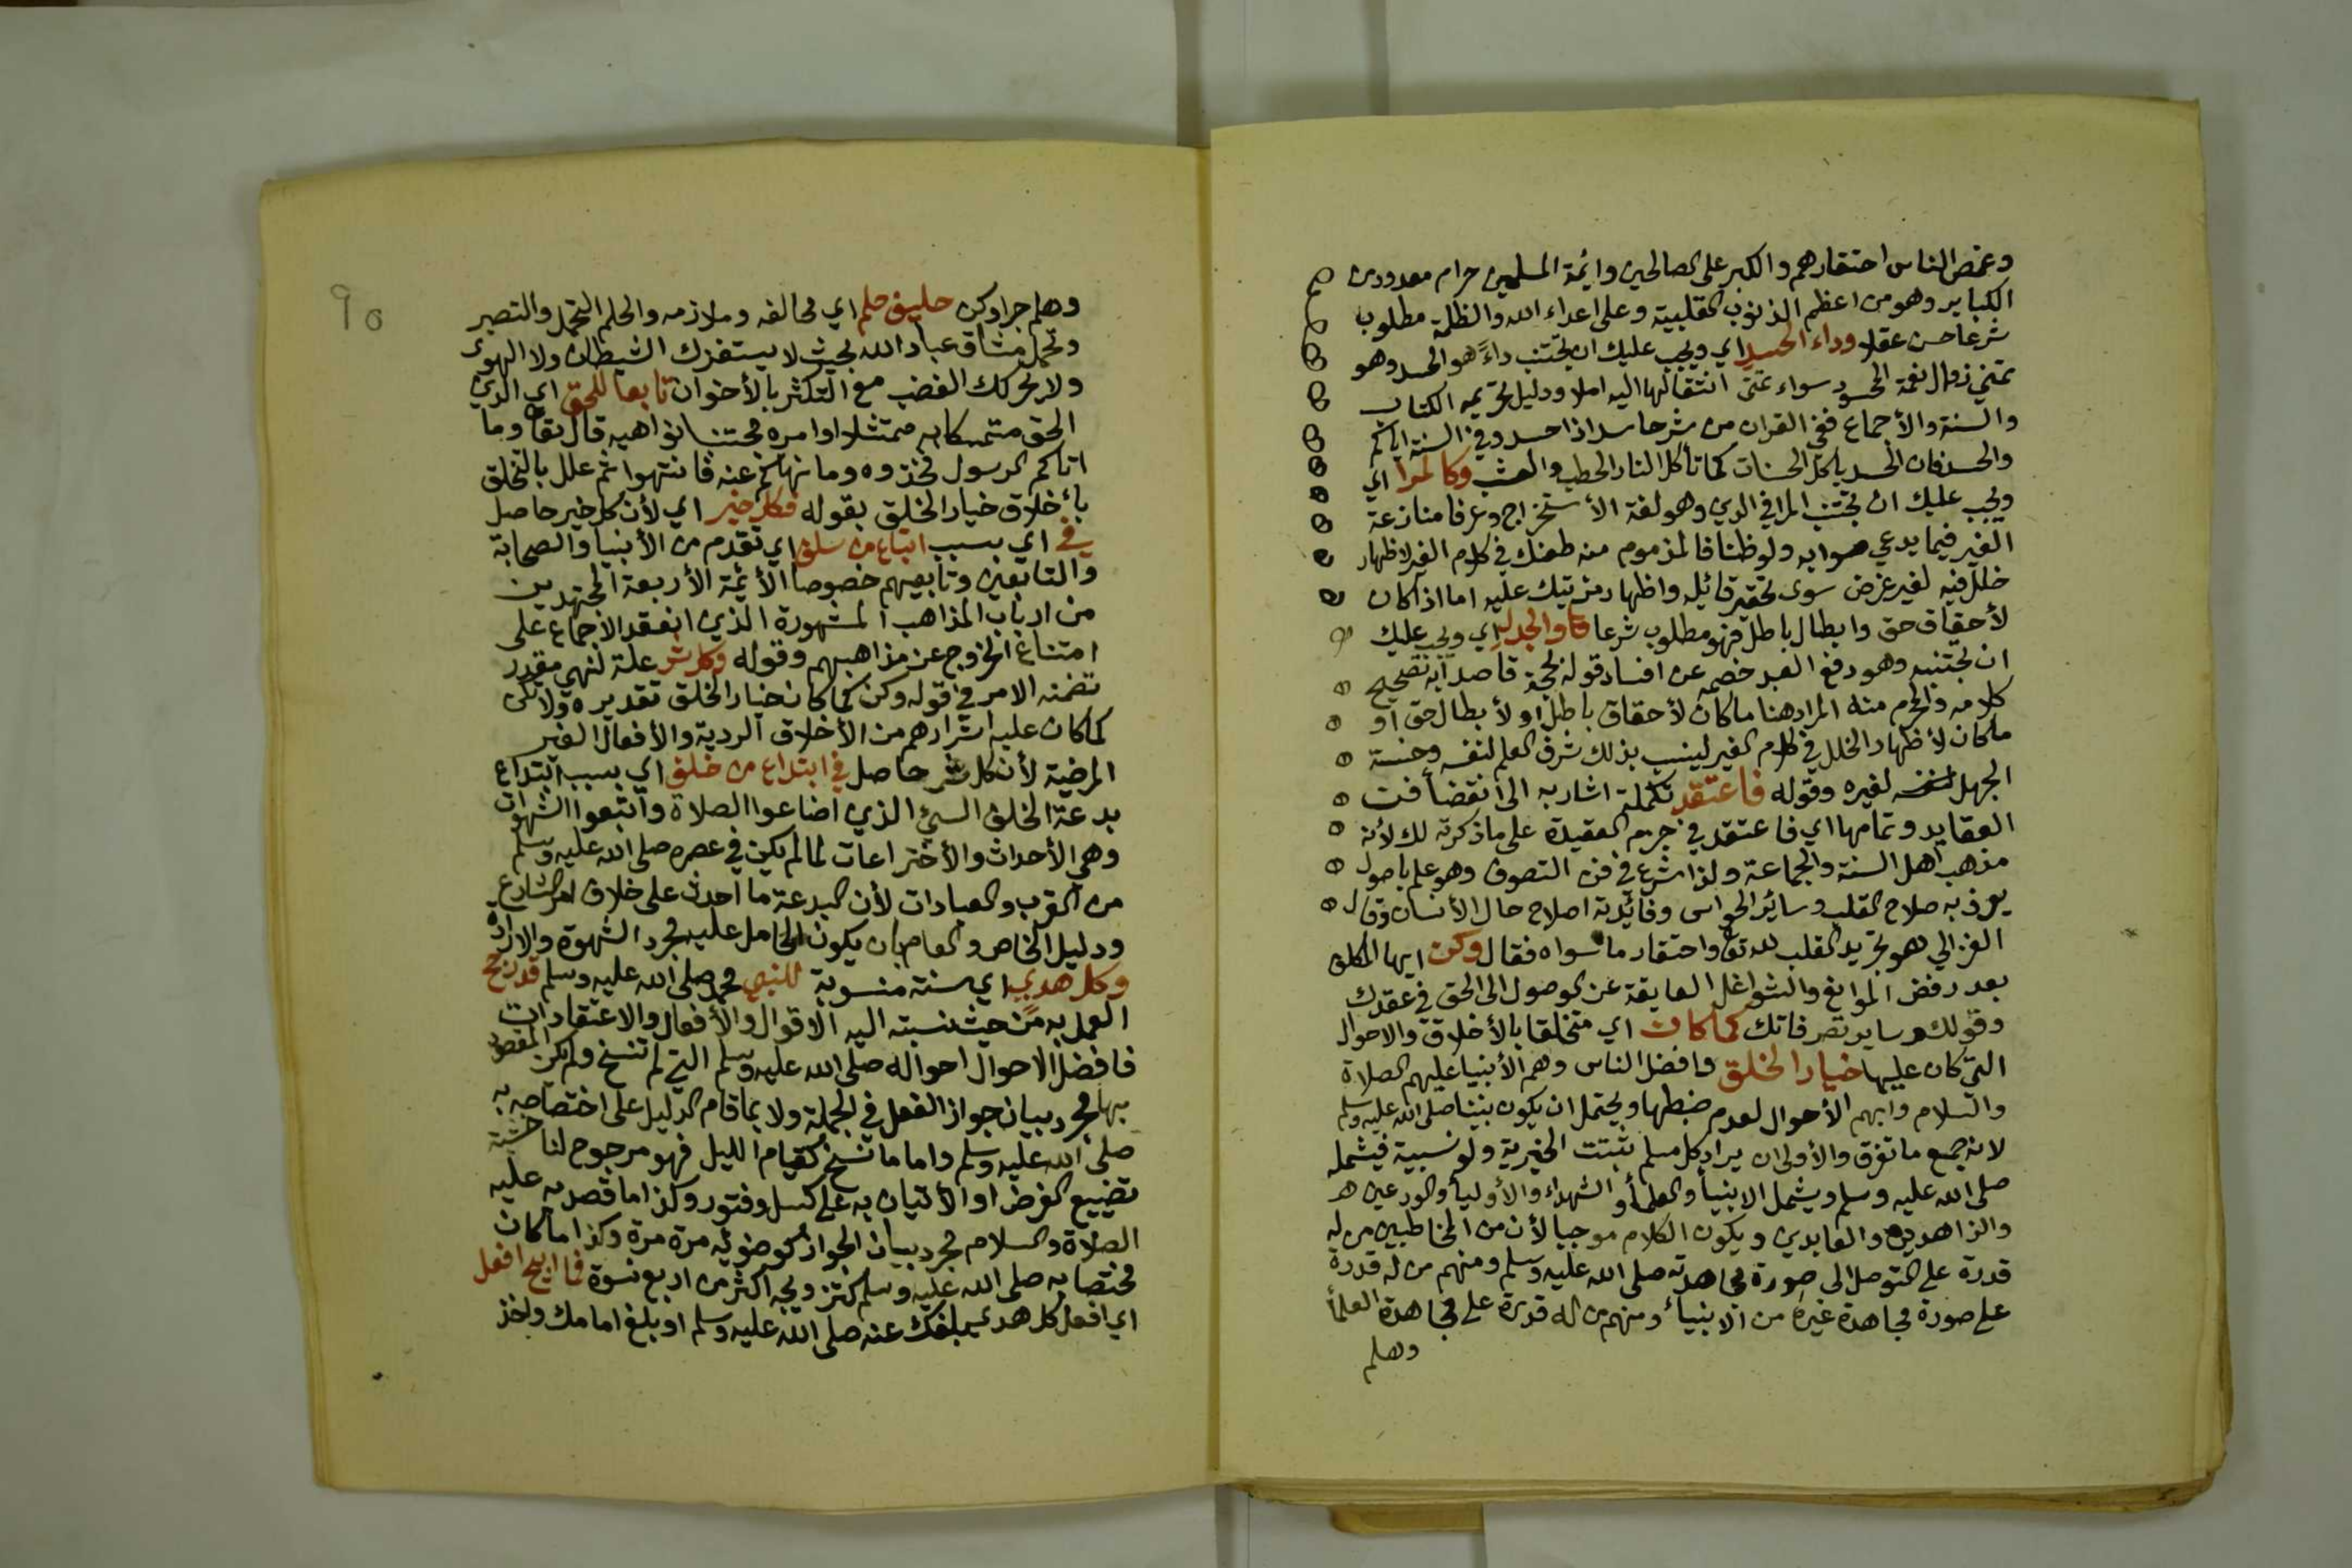 وغمض الناس احتقارهم والكبر على الصالحين وائمة المسلمين حرام معدود من
الكباير وهو من اعظم الذنوب القلبية وعلى اعداء الله والظلمة مطلوب
شرعا حسن عقلا وداء الحسد اي ويجب عليك ان تجتنب داءً هو الحسد وهو
تمني زوال نعمة المحسود سواء تمنى انتقالها اليه املا ودليل تحريمه الكتاب
والسنة والأجماع ففي القران من شر حاسد اذا حسد وفي السنة اياكم
والحسد فان الحسد ياكل الحسنات كما تأكل النار الحطب والعشب وكالمرا اي
ويجب عليك ان تجتنب المرا في الدين وهو لغة الأستخراج وعرفا منازعة
الغير فيما يدعي صوابه ولو ظنا فالمذموم منه طعنك في كلام الغير لاظهار
خلل فيه لغير غرض سوى تحقير قائله واظهار مزيتك عليه اما اذا كان
لأحقاق حق وابطال باطل فهو مطلوب شرعا والجدل اي ويجب عليك
ان تجتنبه وهو دفع العبد خصمه عن افساد قوله بحجة قاصدا به تصحيح
كلامه والمحرم منه المراد هنا ما كان لأحقاق باطل او لأبطال حق او
ما كان لأظهار الخلل في كلام الغير لينسب بذلك شرف العلم لنفسه وخسة
الجهل لغيره وقوله فاعتقد تكملة اشار به الى انقضا فن
العقايد وتمامها اي فاعتقد في جزم العقيدة على ما ذكرته لك لأنه
مذهب اهل السنة والجماعة ولذا شرع في فن التصوف وهو علم باصول
يعرف به صلاح القلب وسائر الحواس وفائدته اصلاح حال الأنسان وقال
الغزالي هو تجريد القلب لله تعا واحتقار ما سواه فقال وكن ايها المكلف
بعد رفض الموانع والشواغل العايقة عن الوصول الى الحق في عقدك
وقولك وساير تصرفاتك كما كان اي متخلقا بالأخلاق والاحوال
التي كان عليها خيار الخلق وافضل الناس وهم الأنبيا عليهم الصلاة
والسلام وابهم الأحوال لعدم ضبطها ويحتمل ان يكون نبينا صلى الله عليه وسلم
لانه جمع ما تفرق والأولى ان يراد كل مسلم ثبتت الخيرية ولو نسبية فيشمله
صلى الله عليه وسلم ويشمل الانبيا والعلما والشهداء والأوليا والورعين
والزاهدين والعابدين ويكون الكلام موجبا لأن من المخاطبين من له
قدرة على التوصل الى صورة مجاهدته صلى الله عليه وسلم ومنهم من له قدرة
على صورة مجاهدة غيره من الانبياء ومنهم من له قدرة على مجاهدة العلماً
وهلم
٩٥
وهلم جرا وكن حليف حلم اي محالفه وملازمه والحلم التحمل والتصبر
وتحمل مشاق عباد الله بحيث لا يستفزك الشيطان ولا الهوى
ولا يحركك الغضب مع التكثر بالأخوان تابعا للحق اي الدين
الحق متمسكا به ممتثلا اوامره مجتنبا نواهيه قال تعا وما
اتاكم الرسول فخذوه وما نهاكم عنه فانتهوا ثم علل بالتخلق
بأخلاق خيار الخلق بقوله فكل خير اي لأن كل خير حاصل
في اي بسبب اتباع من سلف اي تقدم من الأنبيا والصحابة
والتابعين وتابعيهم خصوصا الأئمة الأربعة المجتهدين
من ارباب المذاهب المشهورة الذين انعقد الاجماع على
امتناع الخروج عن مذاهبهم وقوله وكل شر علة لنهي مقدر
تضمنه الامر في قوله وكن كما كان خيار الخلق تقديره ولا تكن
كما كان عليه اشرارهم من الأخلاق الردية والأفعال الغير
المرضية لأن كل شر حاصل في ابتداع من خلف اي بسبب ابتداع
بدعة الخلف السيئ الذين اضاعوا الصلاة واتبعوا الشهوات
وهي الأحداث والأختراعات لما لم يكن في عصره صلى الله عليه وسلم
من القرب والعبادات لأن البدعة ما احدث على خلاف امر الشارع
ودليل الخاص والعام بان يكون الحامل عليه مجرد الشهوة والارادة
وكل هدي اي سنة منسوبة للنبي محمد صلى الله عليه وسلم قد رجح
العمل به من حيث نسبته اليه الاقوال والأفعال والاعتقادات
فافضل الاحوال احواله صلى الله عليه وسلم التي لم تنسخ ولم يكن المقصود
بها مجرد بيان جواز الفعل في الجملة ولا بما قام الدليل على اختصاصه به
صلى الله عليه وسلم واما ما نسخ كقيام الليل فهو مرجوح لنا خشية
تضييع الفرض او الأتيان به على كسل وفتور وكذا ما قصد به عليه
الصلاة والسلام مجرد بيان الجواز كوضوئه مرة مرة وكذا ما كان
مختصا به صلى الله عليه وسلم كتزويجه اكثر من اربع نسوة فما ابيح افعل
اي افعل كل هدي يبلغك عنه صلى الله عليه وسلم او بلغ امامك واخذ